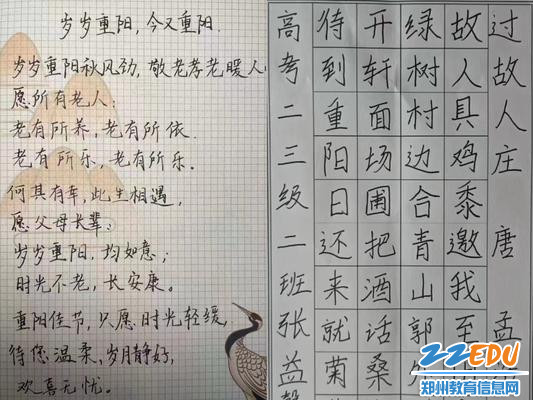 岁岁重阳，今又重阳.
岁岁重阳秋风劲，敬老孝老暖人
愿所有老人：
老有所养，老有所依，
老有所乐，老有所乐。
何其有幸，此生相遇，
愿父母长辈：
岁岁重阳，均如意；
时光不老，长安康。
重阳佳节，只愿时光轻缓，
待您温柔，岁月静好，
欢喜无忧。
过故人庄 唐 孟
故人具鸡黍邀我至
绿树村边合青山郭外
开轩面场圃把酒话桑
待到重阳日还来就菊
高考二三级二班张益
22EDU
郑州教育信息网